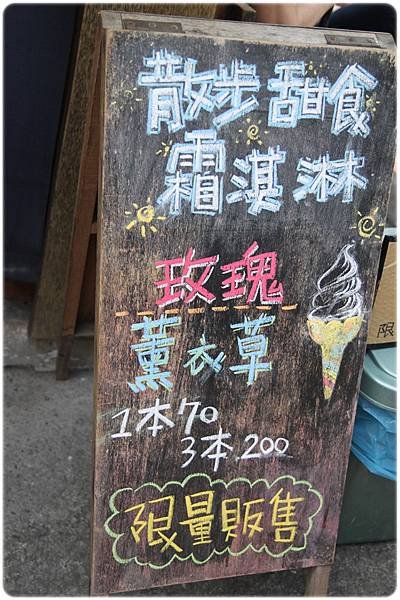 散步甜食
霜淇淋
玫瑰
薰衣草
1本70
3本.200
限量販售
限